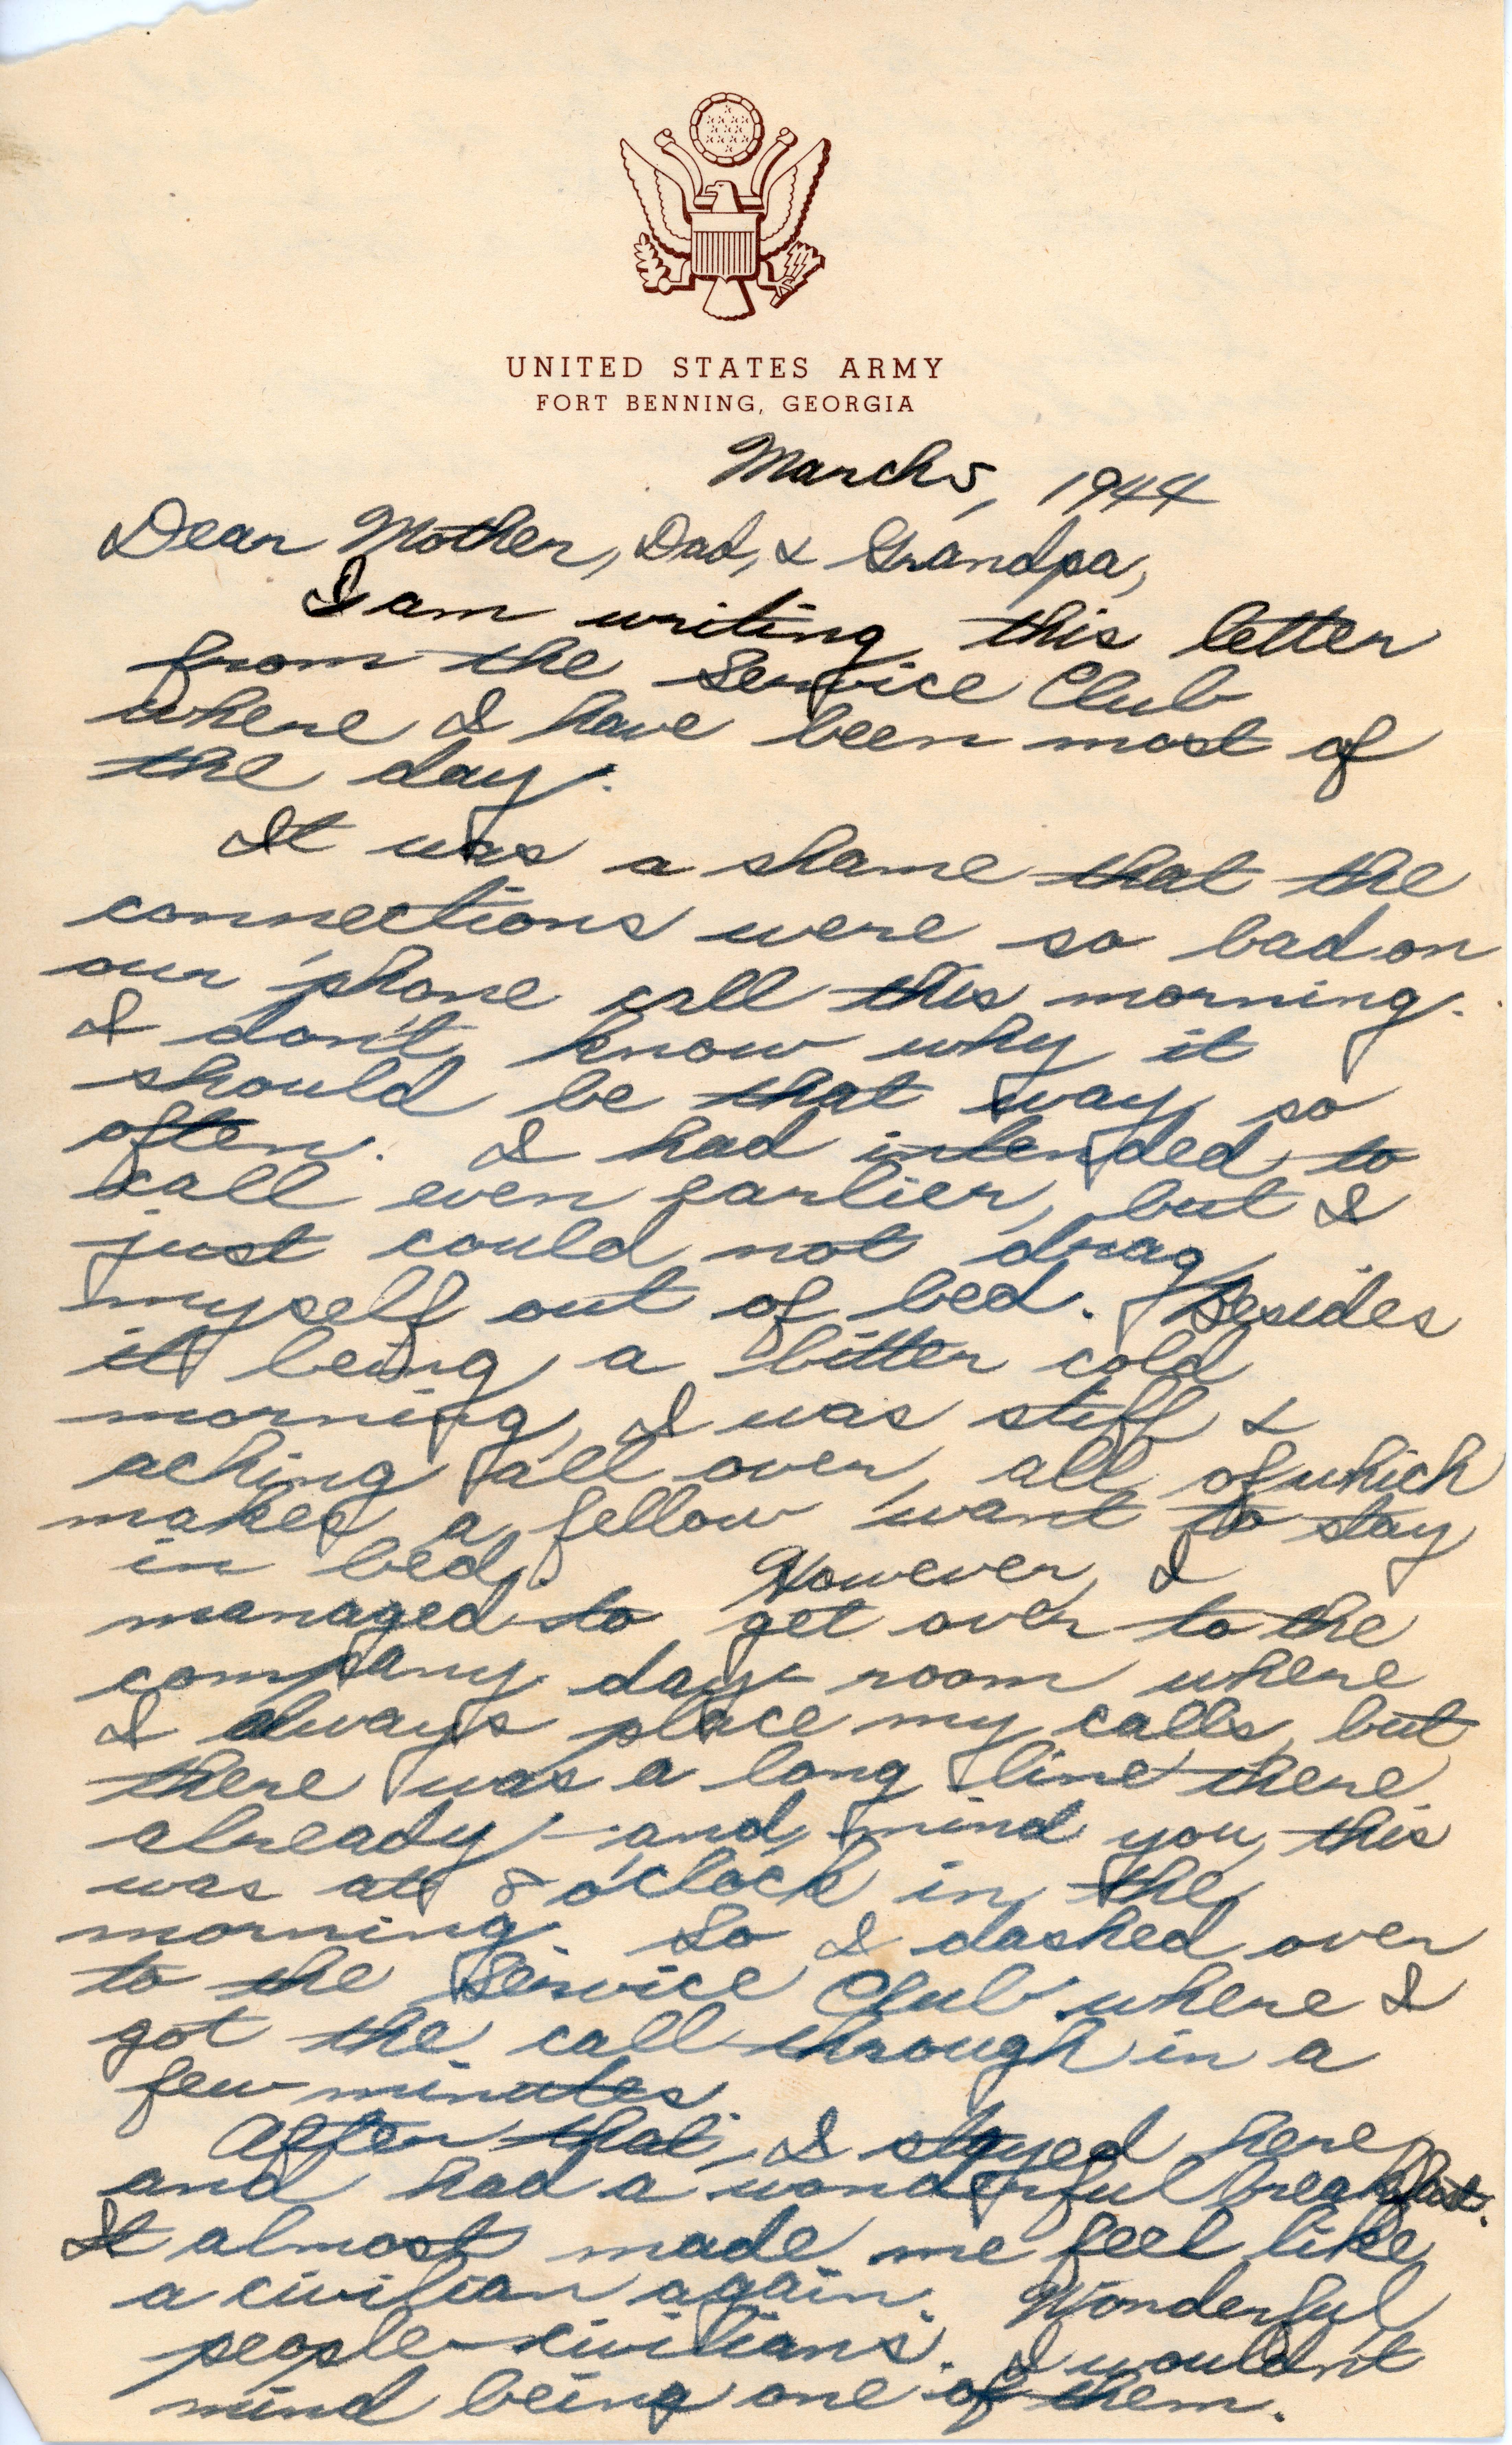 UNITED STATES ARMY
FORT BENNING, GEORGIA
March 5, 1944
Dear Mother, Dad, & Grandpa,
I am writing this letter
from the Service Club
where I have been most of
the day.
It was a shame that the
connections were so bad on
our 'phone call this morning.
I don't know why it
should be that way so
often. I had intended to
call even earlier, but I
just could not drag
myself out of bed. Besides
it being a bitter cold
morning, I was stiff &
aching all over, all of which
makes a fellow want to stay
in bed. However, I
managed to get over to the
company day-room where
I always place my calls, but
there was a long line there
already – and, mind you, this
was at 8 o'clock in the
morning. So I dashed over
to the Service Club where I
got the call through in a
few minutes.
After that, I stayed here
and had a wonderful breakfast.
It almost made me feel like
a civilian again. Wonderful
people – civilians. I wouldn't
mind being one of them.